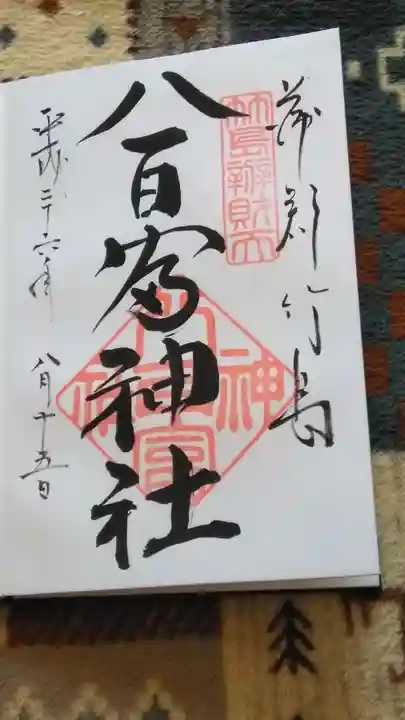 蒲郡竹島
竹島辨財天
八百富神社
平成二十六年 八月十五日